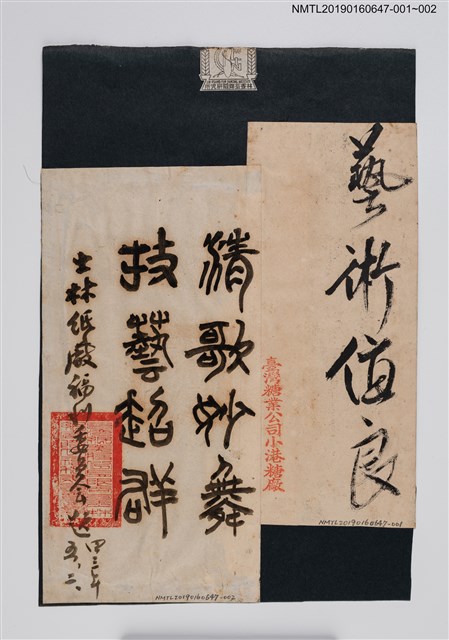 NMTL20190160647-001~002
藝術值良
臺灣糖業公司小港糖廠
NMTL20190160647-001
清歌妙舞
技藝超群
士林紙廠福利委員會題
四三年
五、二、
NMTL20190160647-002